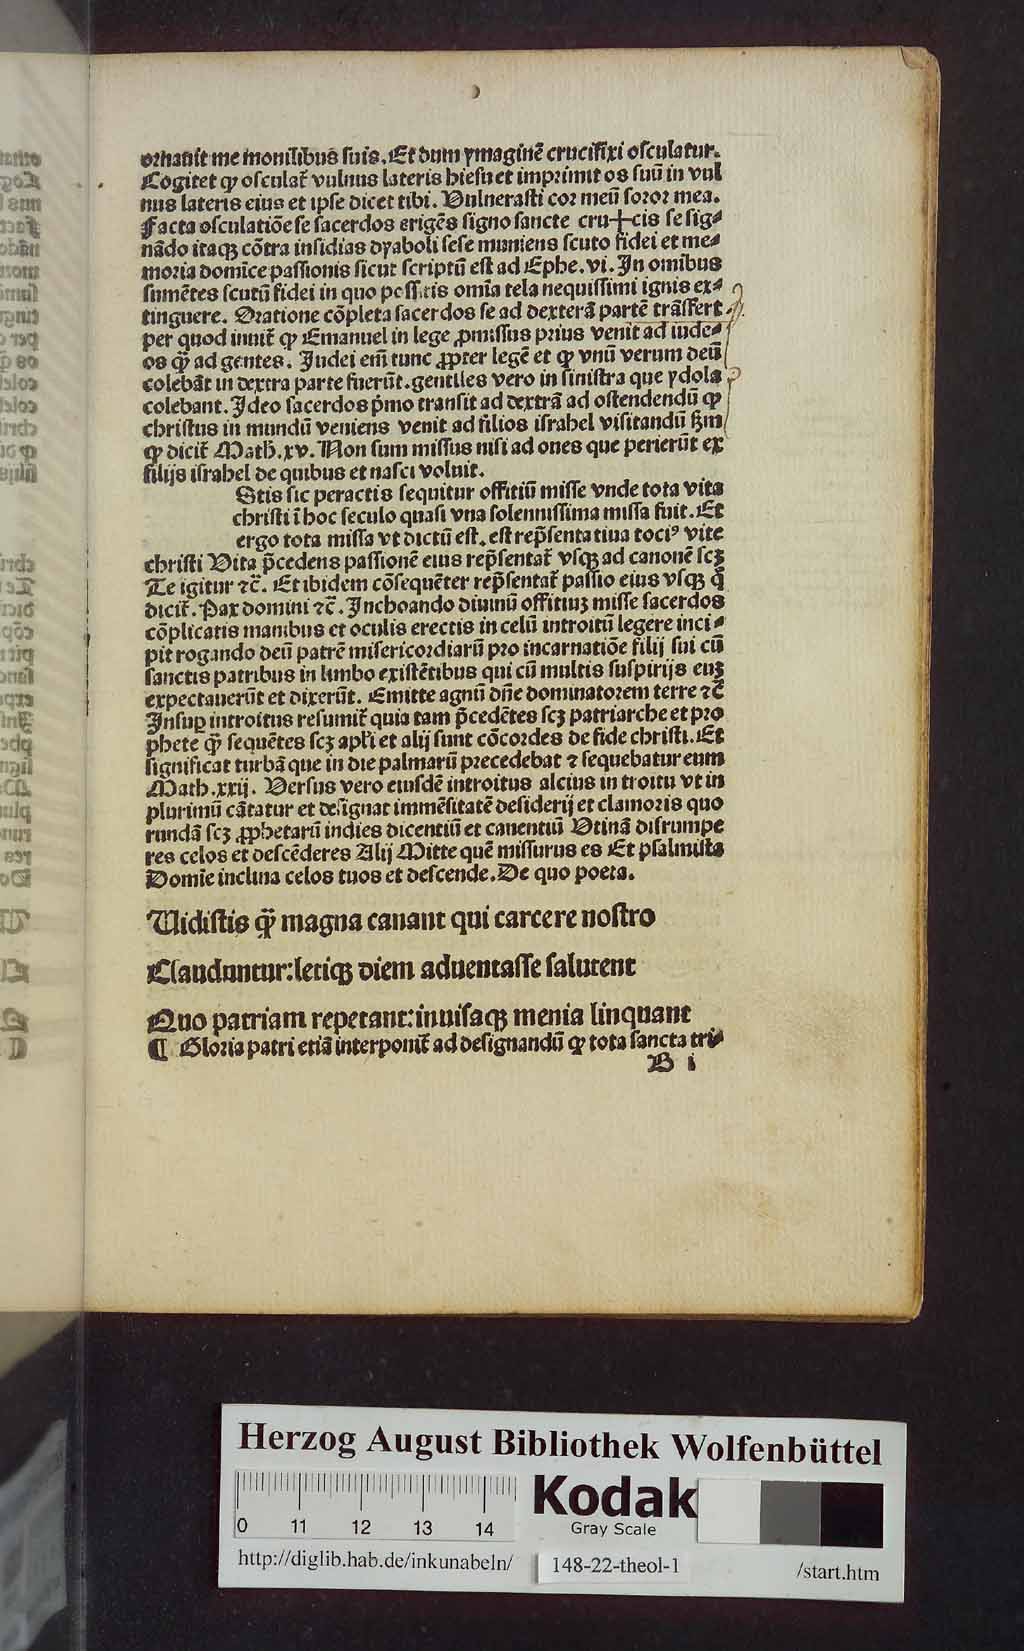 ornauit me monilibus suis. Et dum ymaginē crucifixi osculatur.
Cogitet ꝙ osculat᷑ vulnus lateris hiesu et imprimit os suū in vul
nus lateris eius et ipse dicet tibi. Vulnerasti cor meū soror mea.
Facta osculatiōe se sacerdos erigēs signo sancte cru✝cis se sig⸗
nādo itaqꝫ cōtra insidias dyaboli sese muniens scuto fidei et me⸗
moria domīce passionis sicut scriptū est ad Ephe. vi. In omībus
sumētes scutū fidei in quo possitis omīa tela nequissimi ignis ex⸗
tinguere. Oratione cōpleta sacerdos se ad dexterā partē trāsfert
per quod inuit᷑ ꝙ Emanuel in lege ꝓmissus prius venit ad iude⸗
os ꝙ̄ ad gentes. Iudei em̄ tunc ꝓpter legē et ꝙ vnū verum deū
colebāt in dextra parte fuerūt. gentiles vero in sinistra que ydola
colebant. Ideo sacerdos p̄mo transit ad dextrā ad ostendendū ꝙ
christus in mundū veniens venit ad filios israhel visitandū ẜm
ꝙ dicit᷑ Math. xv. Non sum missus nisi ad ones que perierūt ex
filijs israhel de quibus et nasci voluit.
Stis sic peractis sequitur offitiū misse vnde tota vita
christi ī hoc seculo quasi vna solennissima missa fuit. Et
ergo tota missa vt dictū est. est rep̄sentatiua tociꝰ vite
christi Vita p̄cedens passionē eius rep̄sentat᷑ vsqꝫ ad canonē scꝫ
Te igitur ⁊c̄. Et ibidem cōsequēter rep̄sentat᷑ passio eius vsqꝫ q̄
dicit᷑. Pax domini ⁊c̄. Inchoando diuinū offitiuꝫ misse sacerdos
cōplicatis manibus et oculis erectis in celū introitū legere inci⸗
pit rogando deū patrē misericordiarū pro incarnatiōe filij sui cū
sanctis patribus in limbo existētibus qui cū multis suspirijs euꝫ
expectauerūt et dixerūt. Emitte agnū dn̄e dominatorem terre ⁊c̄
Insuꝑ introitus resumit᷑ quia tam p̄cedētes scꝫ patriarche et pro
phete ꝙ̄ sequētes scꝫ apl̄i et alij sunt cōcordes de fide christi. Et
significat turbā que in die palmarū precedebat ⁊ sequebatur eum
Math. xxij. Versus vero eiusdē introitus alcius in troitu vt in
plurimū cātatur et designat immēsitatē desiderij et clamoris quo
rundā scꝫ ꝓphetarū indies dicentiū et canentiū Vtinā disrumpe
res celos et descēderes Alij Mitte quē missurus es Et psalmista
Domīe inclina celos tuos et descende. De quo poeta.
Vidistis ꝙ̄ magna canant qui carcere nostro
Clauduntur: letiqꝫ diem aduentasse salutent
Quo patriam repetant: inuisaqꝫ menia linquant
¶ Gloria patri etiā interponit᷑ ad designandū ꝙ tota sancta tri⸗
B i
Herzog August Bibliothek Wolfenbüttel
0 11 12 13 14
Kodak
Gray Scale
http://diglib.hab.de/inkunabeln/ 148-22-theol-1 /start.htm